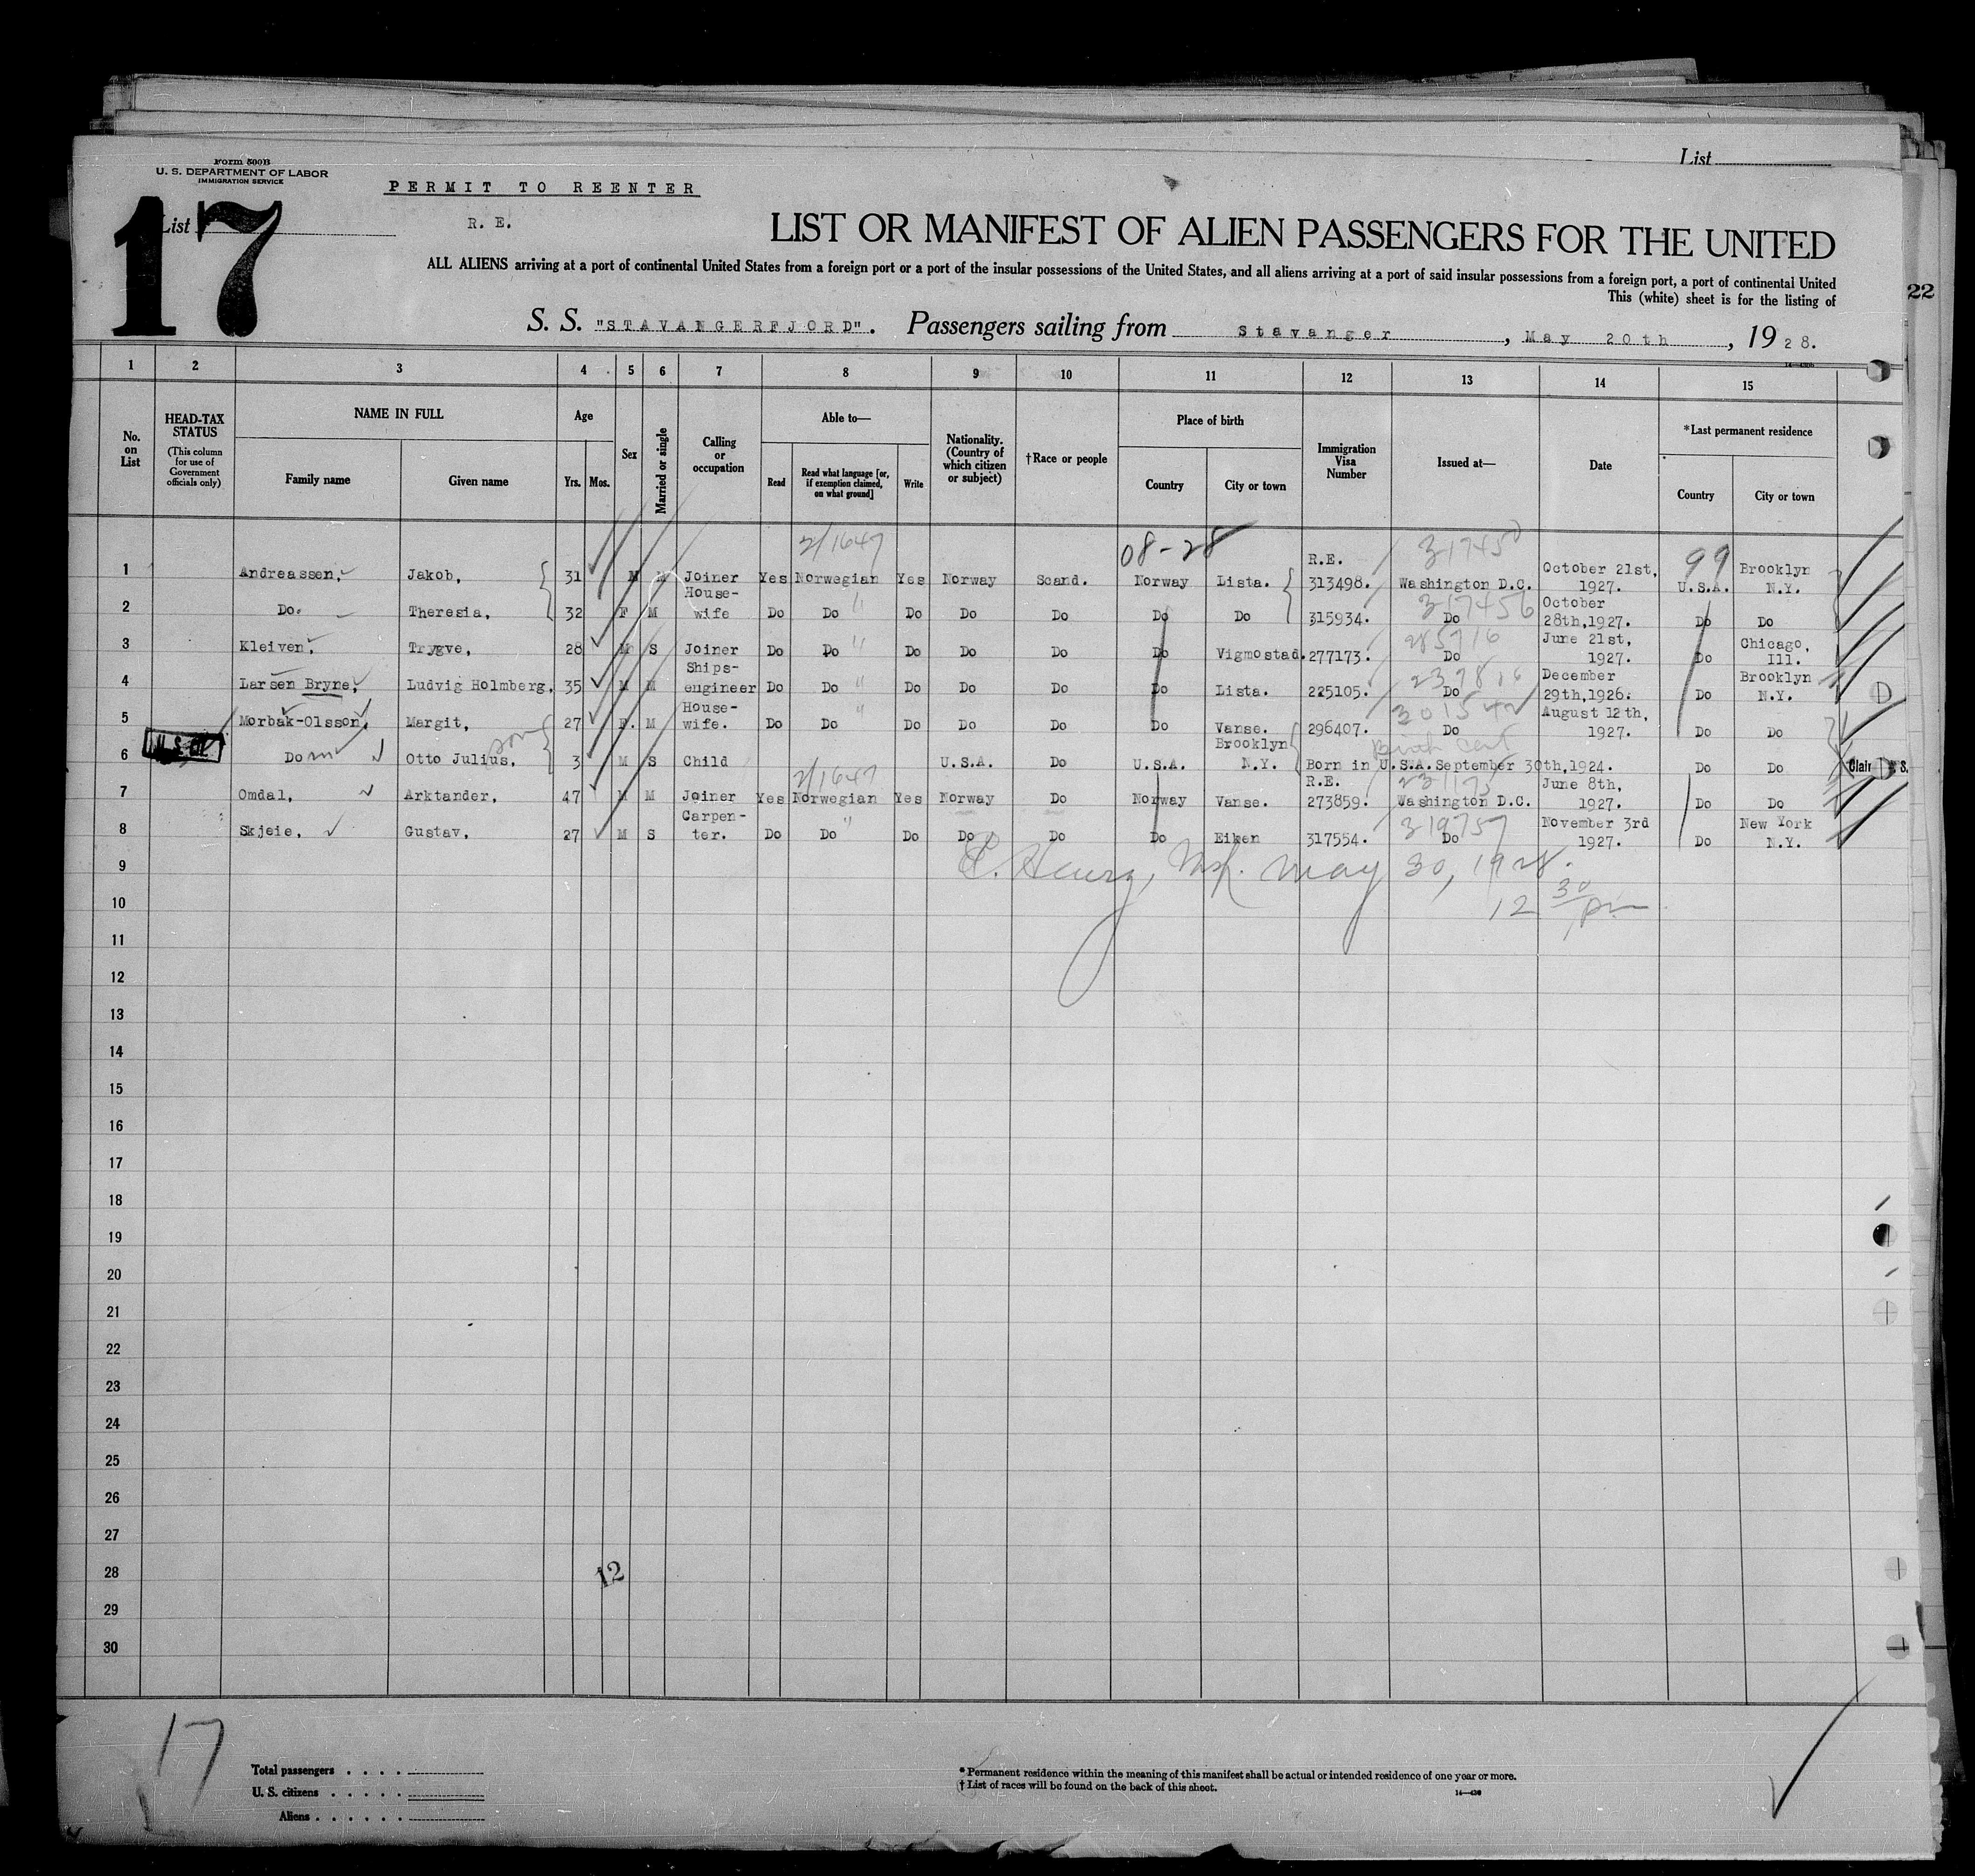 List
Form 500B
U. S. DEPARTMENT OF LABOR
IMMIGRATION SERVICE
PERMIT TO REENTER
17
List
R. E.
LIST OR MANIFEST OF ALIEN PASSENGERS FOR THE UNITED
ALL ALIENS arriving at a port of continental United States from a foreign port or a port of the insular possessions of the United States, and all aliens arriving at a port of said insular possessions from a foreign port, a port of continental United
This (white) sheet is for the listing of
22
S. S. "STAVANGERFJORD". Passengers sailing from Stavanger, May 20th, 1928.
1 2 3 4 5 6 7 8 9 10 11 12 13 14 15
No. on List
HEAD-TAX STATUS (This column for use of Government officials only)
NAME IN FULL Family name Given name
Age Yrs. Mos.
Sex
Married or single
Calling or occupation
Able to— Read Read what language [or, if exemption claimed, on what ground] Write
Nationality. (Country of which citizen or subject)
†Race or people
Place of birth Country City or town
Immigration Visa Number
Issued at—
Date
*Last permanent residence Country City or town
2/1647 08-28 317450 99
1 Andreassen, Jakob, 31 M M Joiner Yes Norwegian Yes Norway Scand. Norway Lista. R.E. 313498. Washington D.C. October 21st, 1927. U.S.A. Brooklyn N.Y.
2 Do. Theresia, 32 F M House-wife Do Do " Do Do Do Do Do 315934. 317456 Do October 28th,1927. Do Do
3 Kleiven, Trygve, 28 M S Joiner Do Do " Do Do Do Do Vigmostad. 277173. 285716 Do June 21st, 1927. Do Chicago, Ill.
4 Larsen Bryne, Ludvig Holmberg, 35 M M Ships-engineer Do Do " Do Do Do Do Lista. 225105. 237816 Do December 29th,1926. Do Brooklyn N.Y.
5 Morbak-Olsson, Margit, 27 F. M House-wife. Do Do " Do Do Do Do Vanse. 296407. Do August 12th, 1927. Do Do
6 Do m son Otto Julius, 3 M S Child U.S.A. Do U.S.A. Brooklyn N.Y. Birth Cert Born in U.S.A. September 30th,1924. Do Do
2/1647
7 Omdal, Arktander, 47 M M Joiner Yes Norwegian Yes Norway Do Norway Vanse. R.E. 273859. Washington D.C. June 8th, 1927. Do Do
8 Skjeie, Gustav, 27 M S Carpen-ter. Do Do " Do Do Do Do Eiken 317554. 319757 Do November 3rd 1927. Do New York N.Y.
9 May 30, 1928.
10 12 30 pm
11
12
13
14
15
16
17
18
19
20
21
22
23
24
25
26
27
28 12
29
30
17
Total passengers
U. S. citizens
Aliens
* Permanent residence within the meaning of this manifest shall be actual or intended residence of one year or more.
† List of races will be found on the back of this sheet.